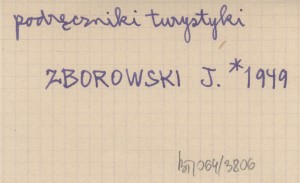 podręczniki turystyki
ZBOROWSKI J. *1949
/064/3806